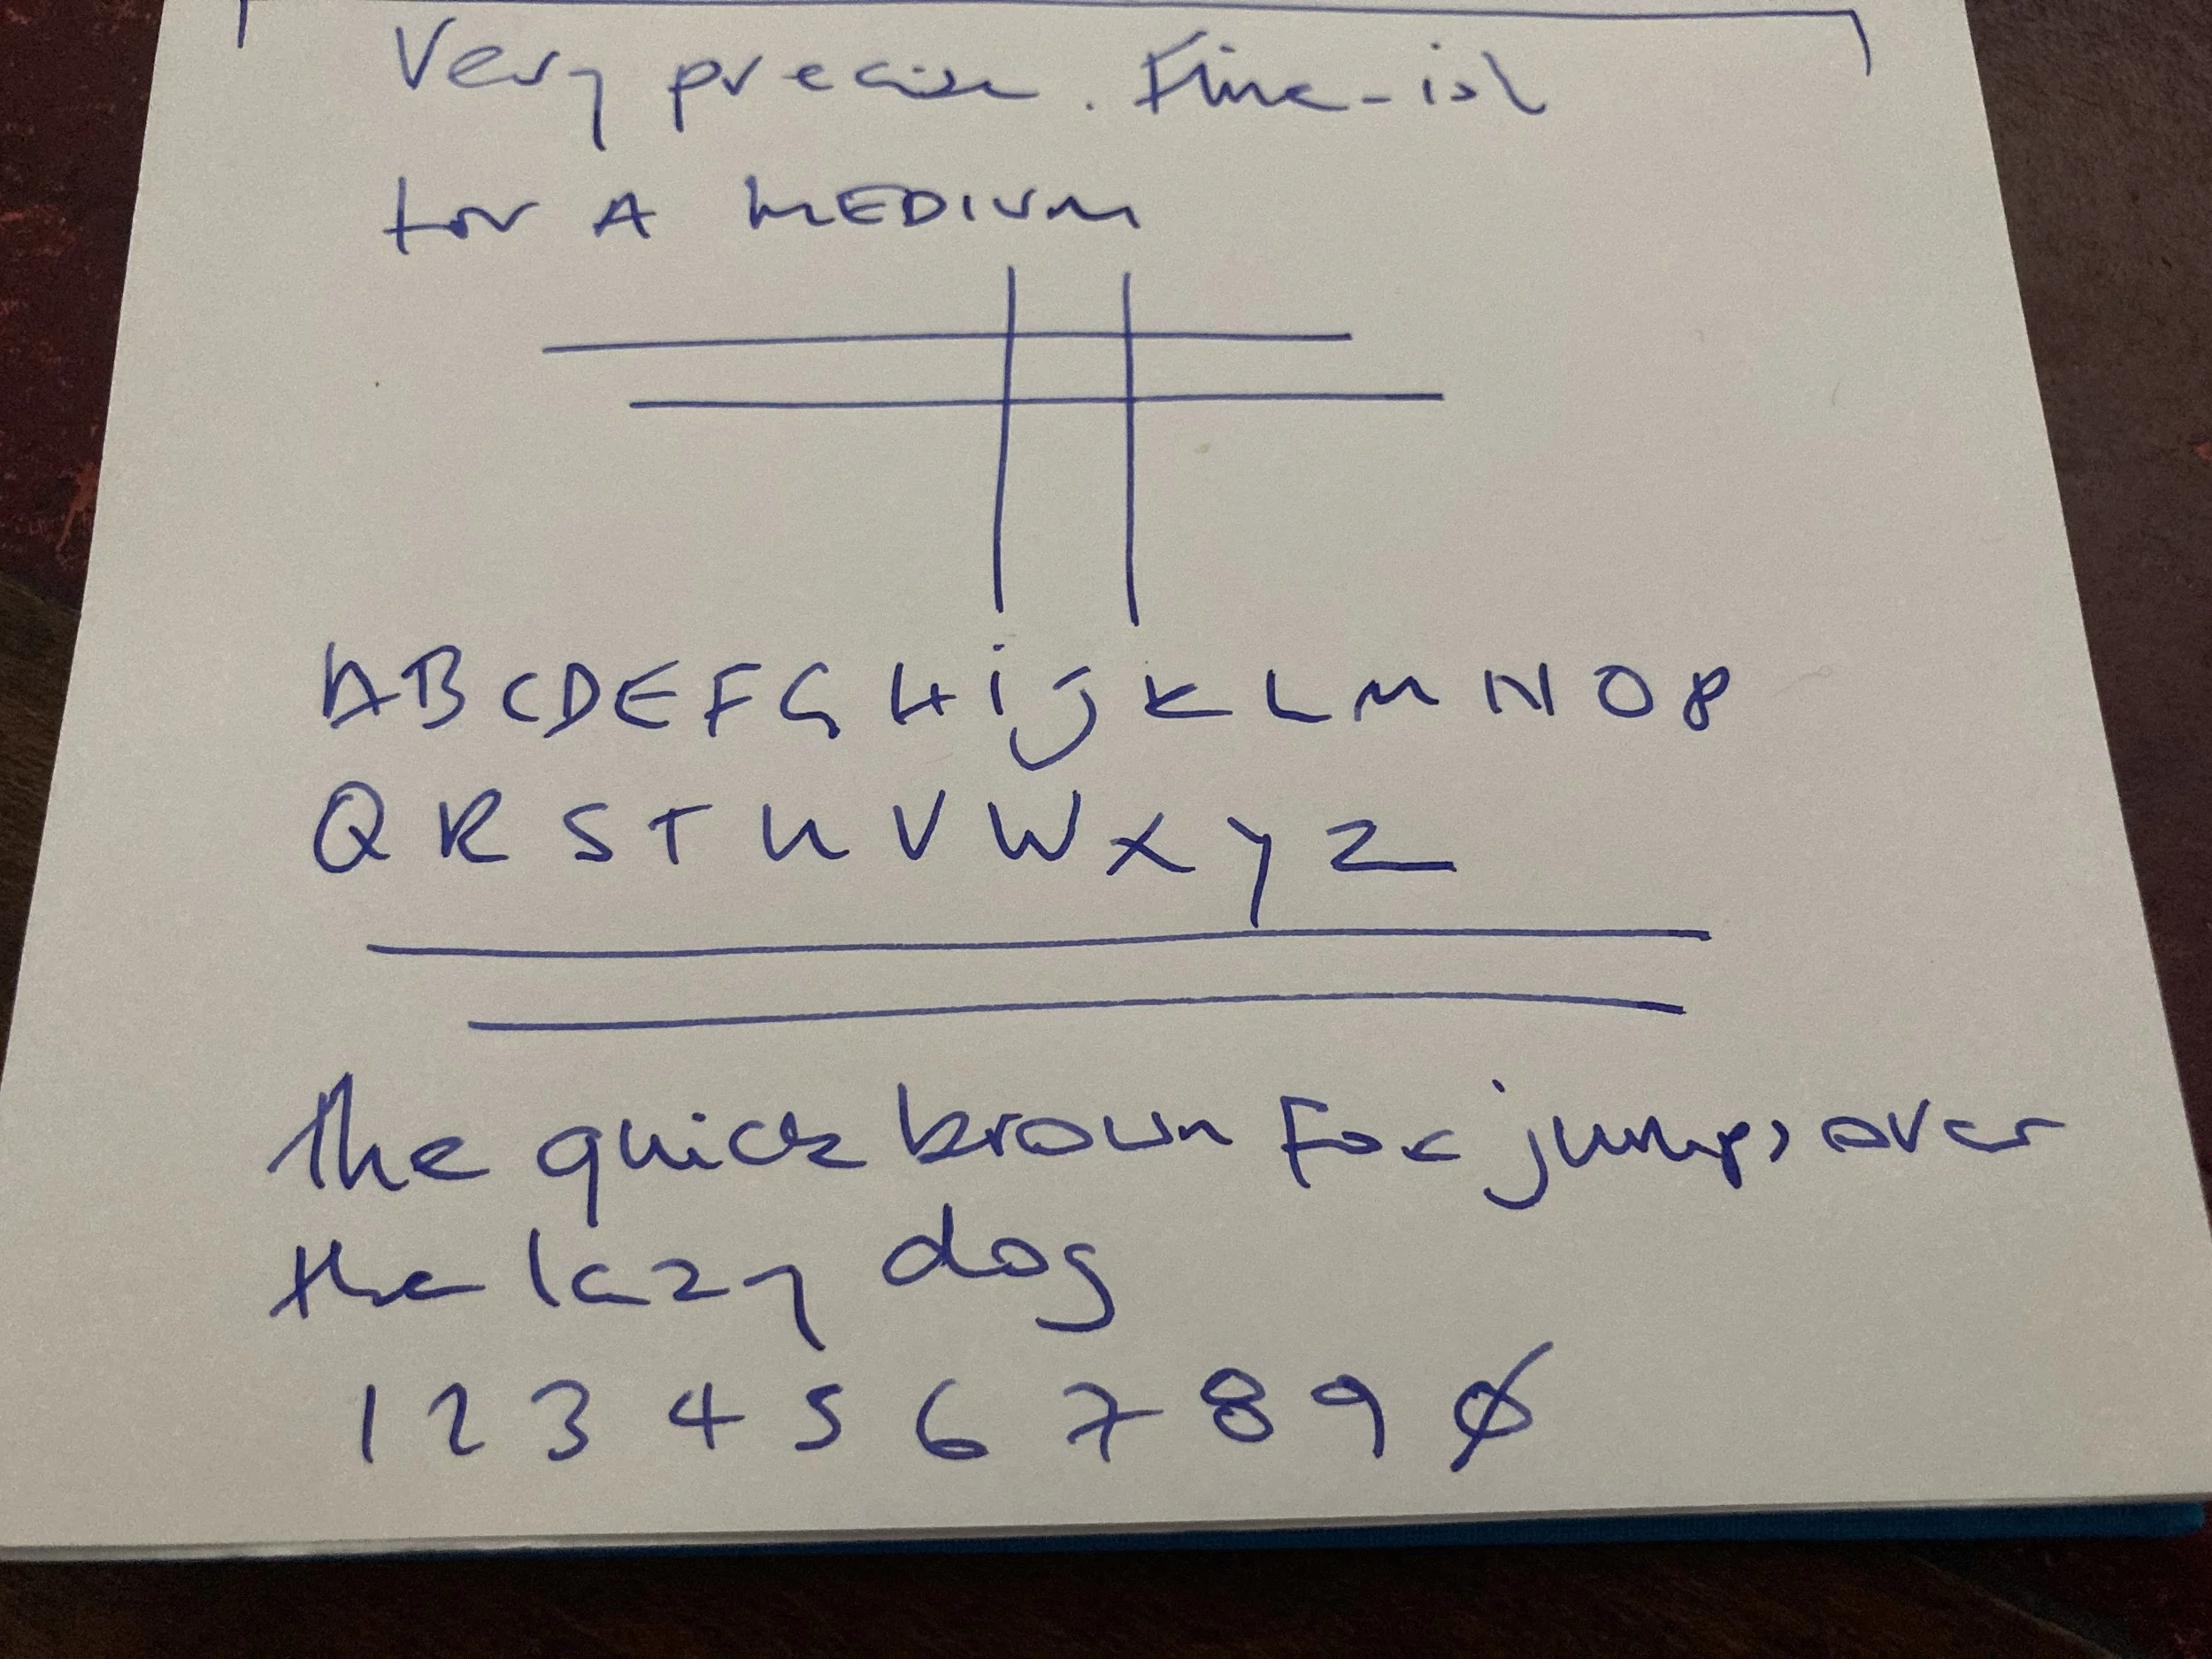 Very precise. Fine-ish
for A MEDIUM
ABCDEFGHijKLMNOP
QRSTUVWXYZ
the quick brown Fox jumps over
the lazy dog
1 2 3 4 5 6 7 8 9 0